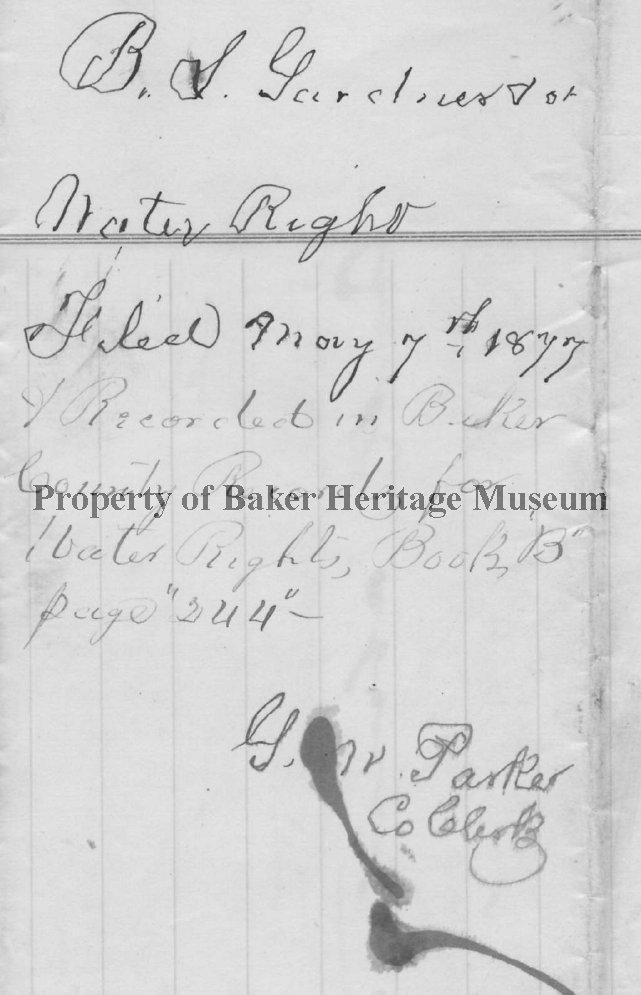 B. S. Gardner et al
Water Right
Filed May 7th 1877
& Recorded in Baker
County Records for
Property of Baker Heritage Museum
Water Rights, Book "B"
page "244" —
G. W. Parker
Co Clerk